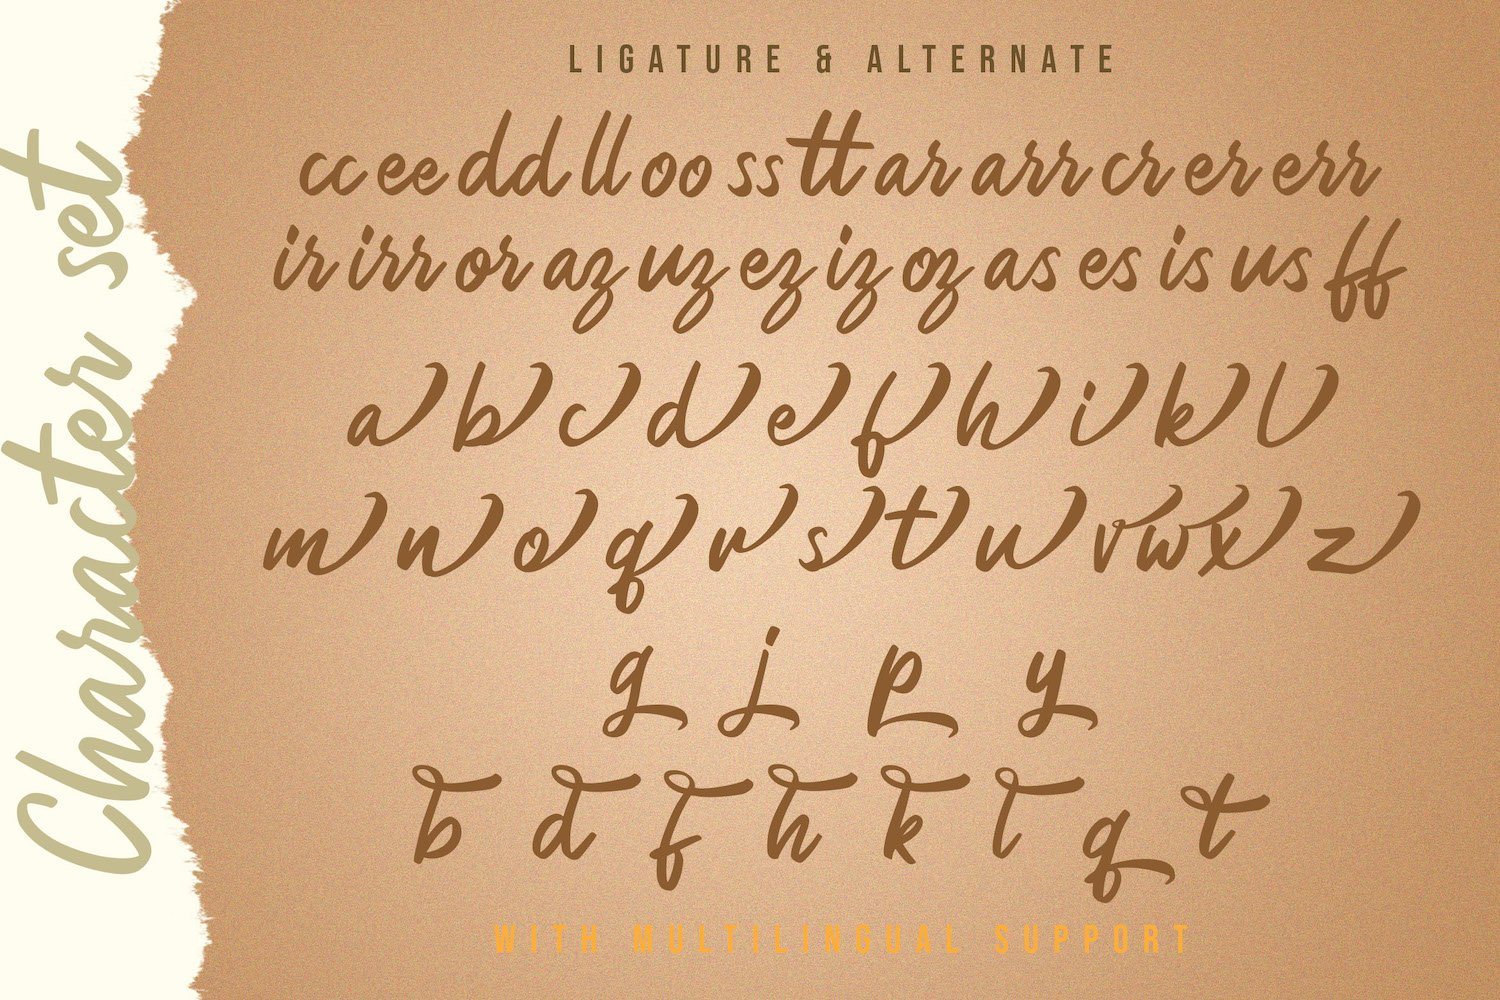 Character set
LIGATURE & ALTERNATE
cc ee dd ll oo ss tt ar arr cr er err
ir irr or az uz ez iz oz as es is us ff
a b c d e f h i k l
m n o q r s t u v w x z
g j p y
b d f h k l q t
WITH MULTILINGUAL SUPPORT